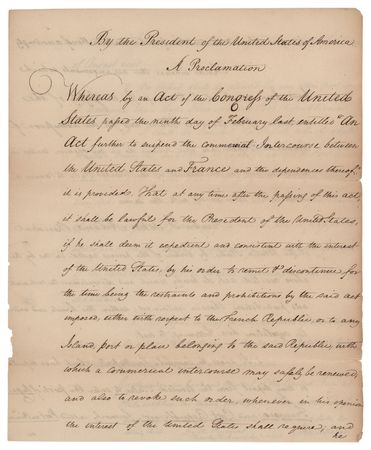 By the President of the United States of America
A Proclamation
Whereas by an Act of the Congress of the United
States passed the ninth day of February last, entitled "An
Act further to suspend the commercial Intercourse between
the United States and France and the dependences thereof"
it is provided, That at any time after the passing of this act,
it shall be lawful for the President of the United States,
if he shall deem it expedient and consistent with the interest
of the United States, by his order to remit & discontinue for
the time being the restraints and prohibitions by the said act
imposed, either with respect to the French Republic, or to any
Island, port or place belonging to the said Republic, with
which a commercial intercourse may safely be renewed,
and also to revoke such order, whenever in his opinion
the interest of the United States shall require; and
he